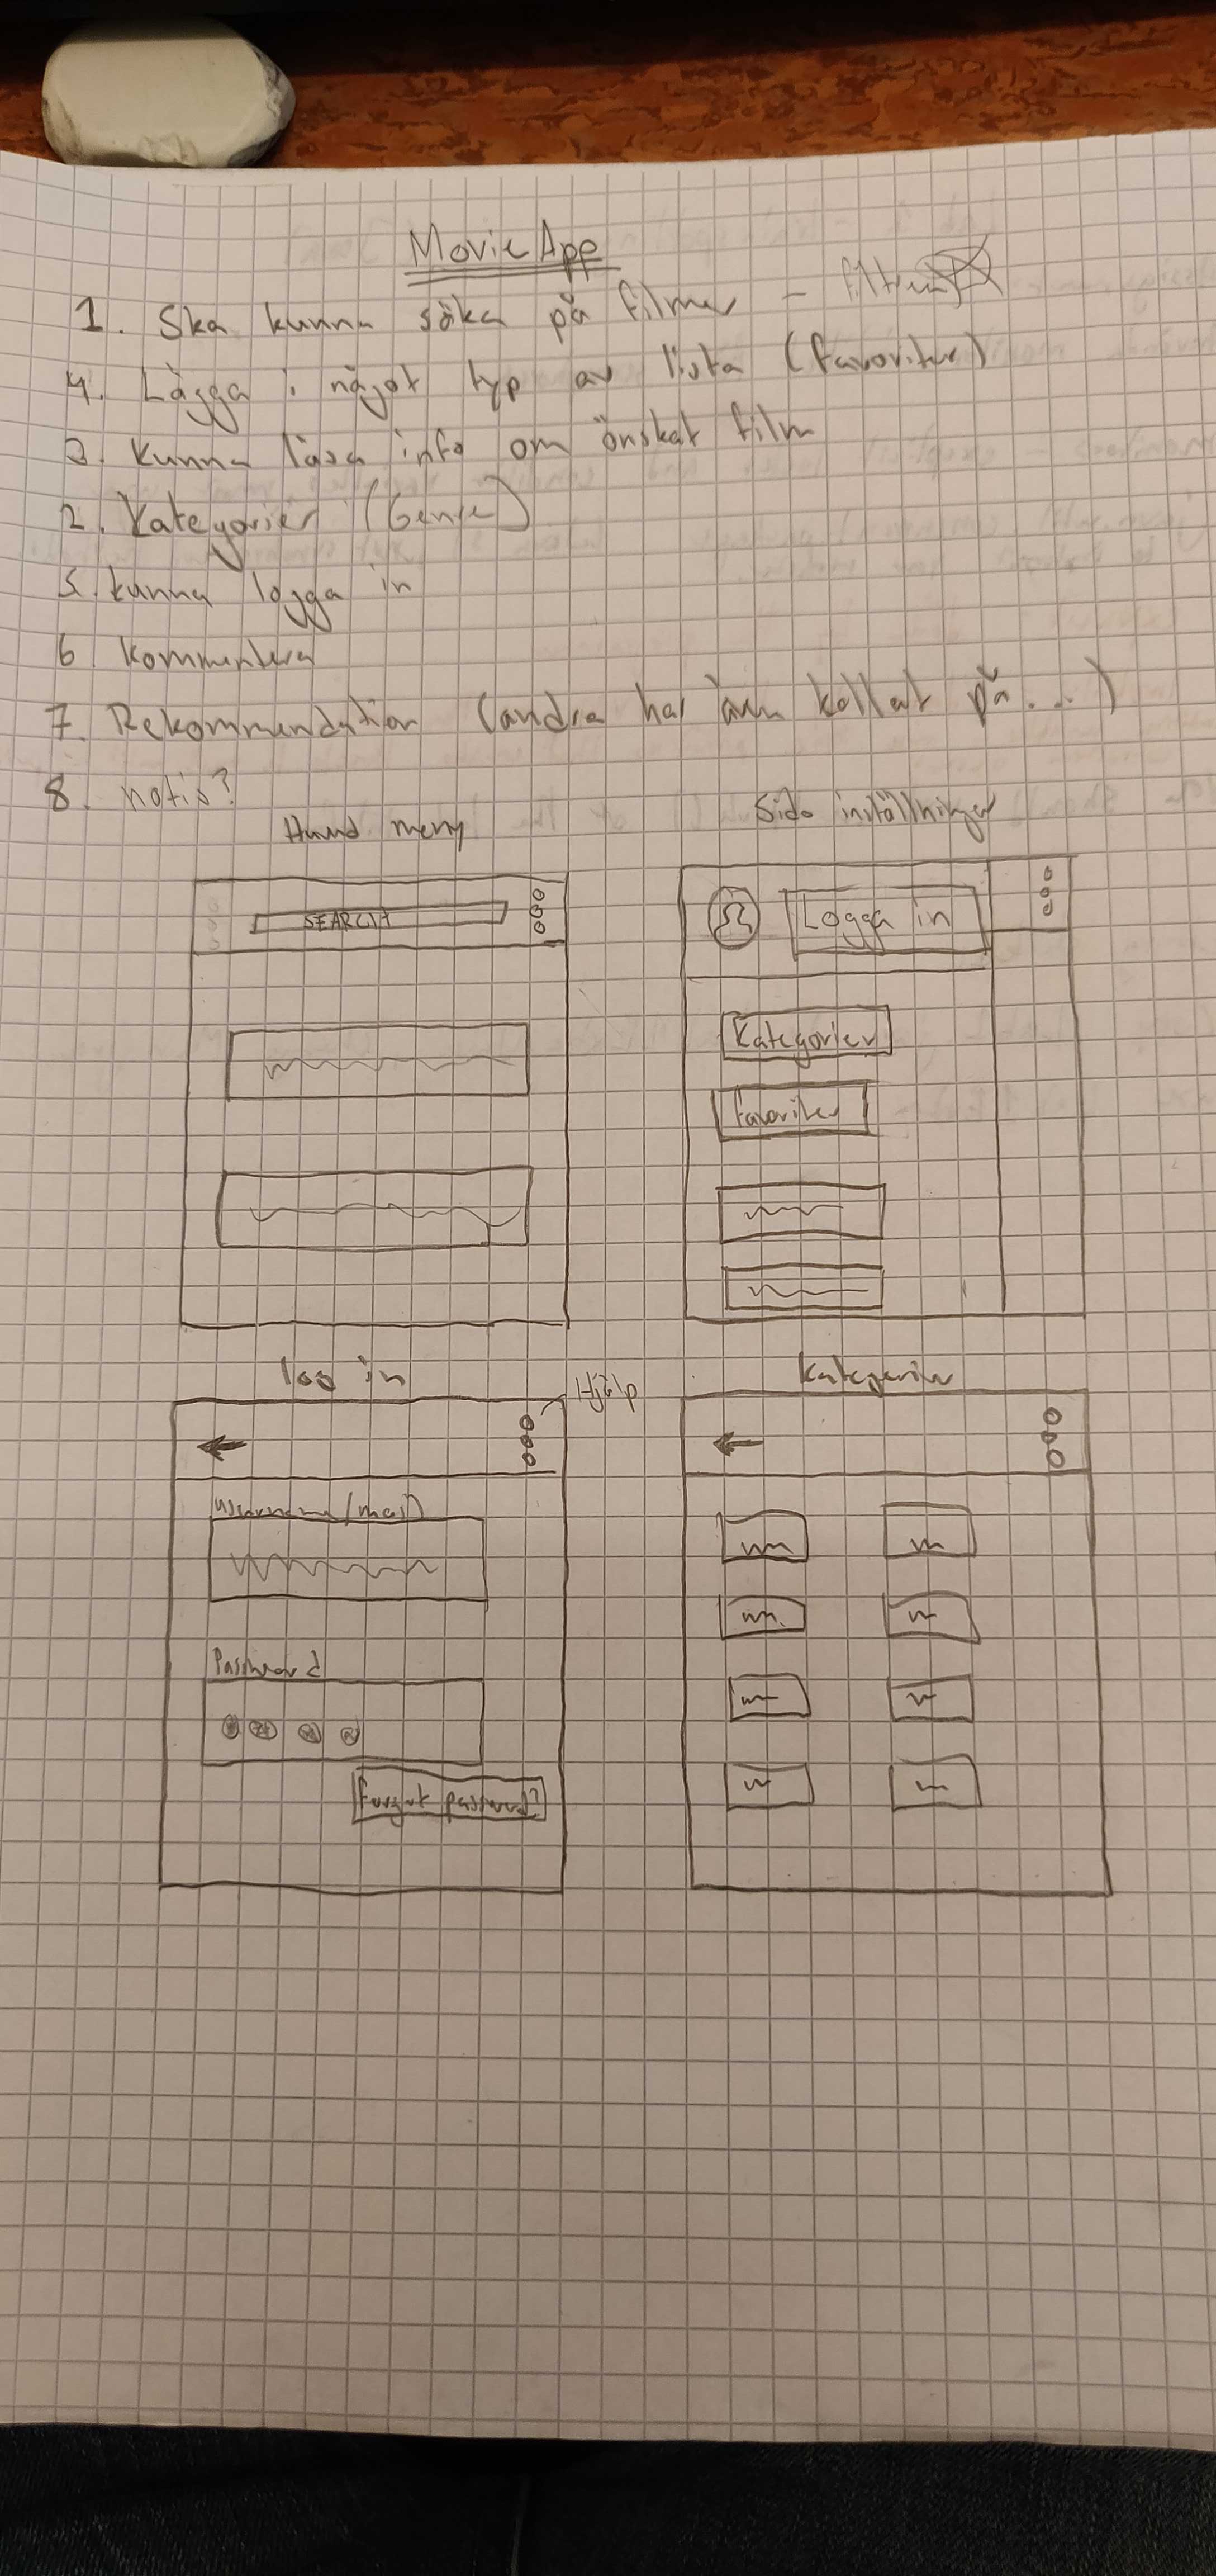 Movie App
1. Ska kunna söka på filmer -
4. Lägga i något typ av lista (favoriter)
3. Kunna läsa info om önskat film
2. Kategorier (Genre)
5. kunna logga in
6 kommentera
7. Rekommendation (andra har även kollat på...)
8. notis?
Huvud meny
Sido inställningar
SEARCH
Logga in
Kategorier
favoriter
log in
Hjälp
Kategorier
Username/mail)
Password
Forgot password?